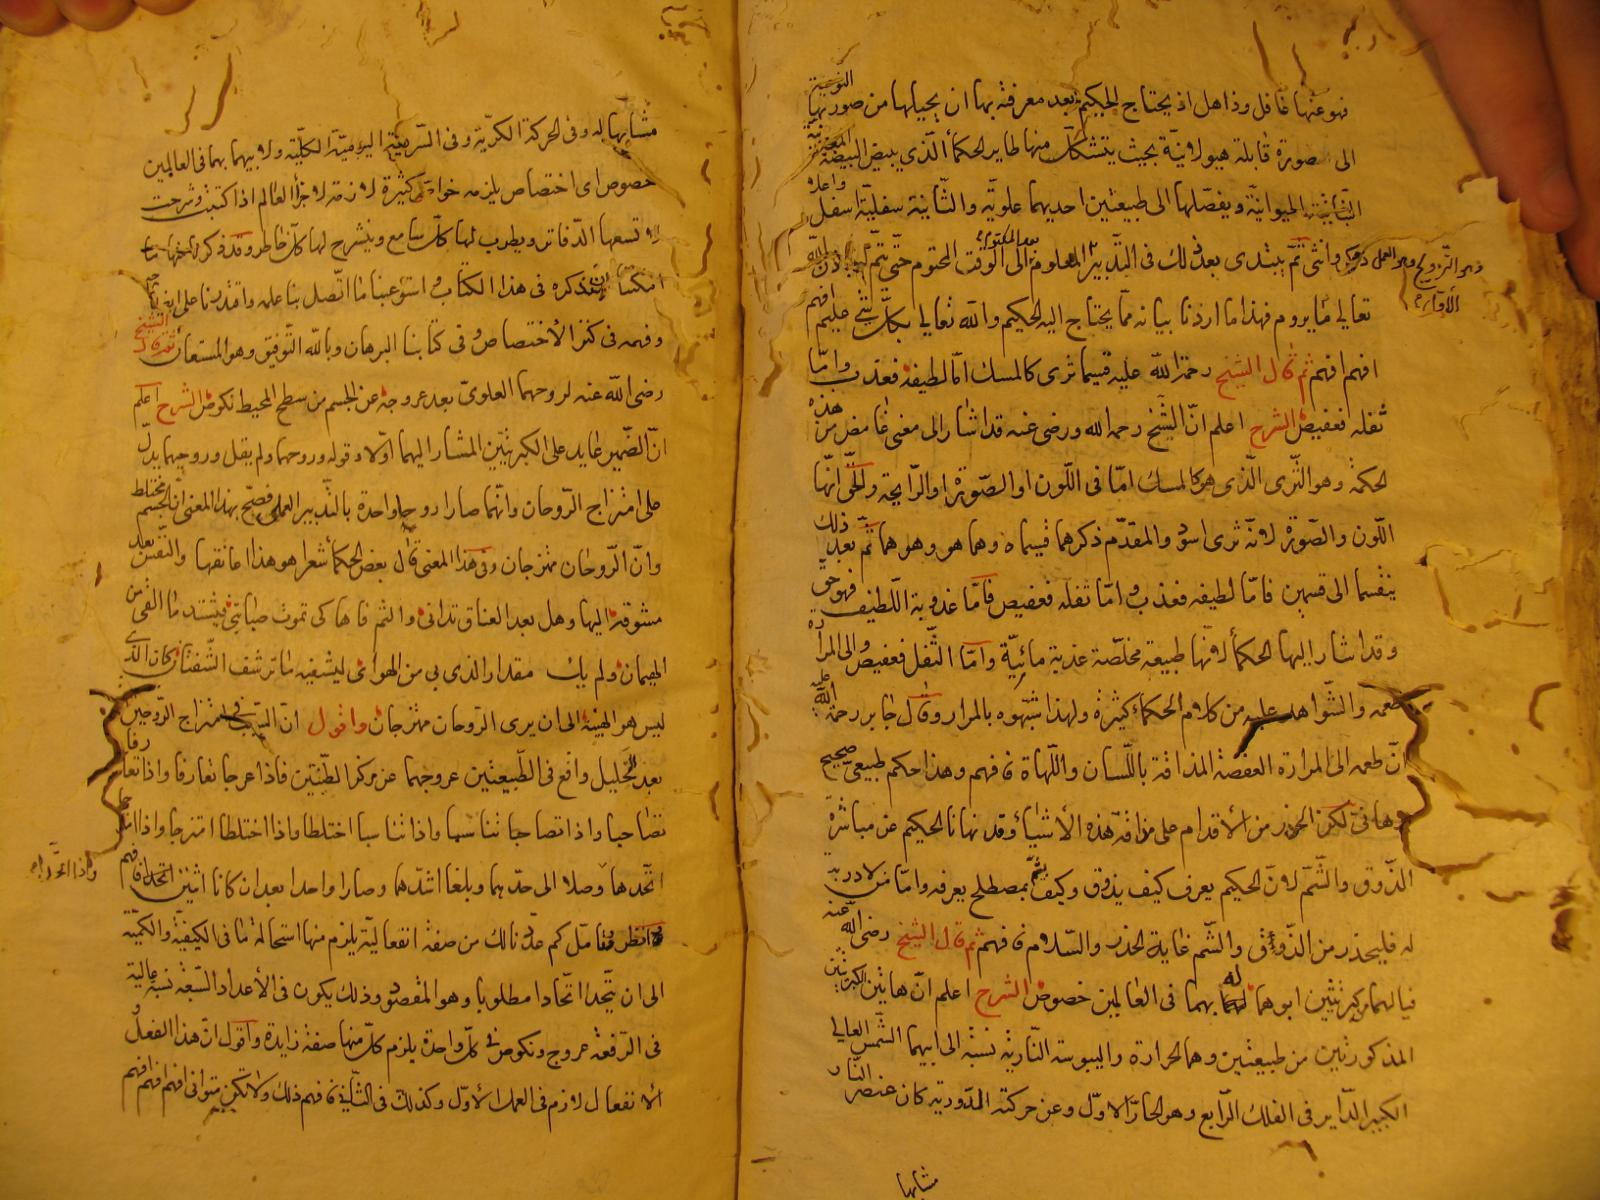 فهو عنها غافل وذاهل اذ يحتاج الحكيم بعد معرفته بها ان يحيلها من صورتها النوعية
الى صورة قابلة هيولانية بحيث يتشكل منها طاير الحكمأ الذى يبيض البيضة
الثانية الحيوانية ويفصلها الى طبيعتين احديهما علوية والثانية سفلية اسفل واعلا
وانثى ثم يبتدى بعد ذلك فى التدبير المعلوم الى الوقت المحتوم حتى يتم له باذن الله
وهو التزويج وهو العمل
تعالى ما يروم فهذا ما اردنا بيانه مما يحتاج اليه الحكيم والله تعالى بكل شئ عليم افهم
افهم افهم ثم قال الشيخ رحمة الله عليه قسيما ثرى كالمسك اما لطيفه فعذب واما
ثفله فعفيص الشرح اعلم ان الشيخ رحمه الله ورضى عنه قد اشار الى معنى غامض من هذه
الحكمة وهو الثرى الذى هو كالمسك اما فى اللون او الصورة او الرايحة والحق انها
اللون والصورة لانه ثرى اسود والمقدم ذكرهما قسيماه وهما هو وهو هما ثم بعد ذلك
ينقسما الى قسمين فاما لطيفه فعذب واما ثفله فعفيص فاما عذوبة اللطيف فهو حق
وقد اشار اليها الحكمأ لانها طبيعة مخلصة عذبة مائية واما الثفل فعفيص والى المرارة
طعمه والشواهد عليه من كلام الحكمأ كثيرة ولهذا شبهوه بالمرار وقال جابر رحمة الله عليه
ان طعمه الى المرارة العفصة المذاقة باللسان واللهاة فافهم وهذا حكم طبيعى صحيح
لكن الحذر من الاقدام على مذاقة هذه الاشياء وقد نهانا الحكيم عن مباشرة
الذوق والشم لان الحكيم يعرف كيف يذوق وكيف يشم بمصطلح يعرفه واما من لا دربة
له فليحذر من الذوق والشم غاية الحذر والسلام فافهم ثم قال الشيخ رضى الله عنه
فيالهما كبريتين ابوهما له بهما فى العالمين خصوص الشرح اعلم ان هاتين الكبريتين
المذكورتين من طبيعتين وهما الحرارة واليبوسة النارية نسبة الى ابيهما الشمس العالى
الكبير الداير فى الفلك الرابع وهو الحار الاول وعن حركته الدورية كان عنصر النار
مشابها
مشابها له وفى الحركة الكرية وفى السريعة اليومية الكلية ولابيهما بهما فى العالمين
خصوص اى اختصاص يلزمه خواص كثيرة لازمة لاجزأ العالم اذا كتبت وشرحت
لا تسعها الدفاتر ويطرب لها كل سامع وينشرح لها كل خاطر وقد ذكر
امكننا ان نذكره فى هذا الكتاب واستوعبنا ما اتصل بنا علمه واقدرنا على
وفهمه فى كنز الاختصاص وفى كتابنا البرهان وبالله التوفيق وهو المستعان ثم قال الشيخ
رضى الله عنه لروحهما العلوى بعد عروجه عن الجسم من سطح المحيط نكوص الشرح اعلم
ان الضمير عايد على الكبريتين المشار اليهما اولا وقوله وروحهما ولم يقل وروحيهما يدل
على امتزاج الروحان وانهما صارا روحا واحدة بالتدبير العملى فصح بهذا المعنى ان الجسم مختلط
وان الروحان ممتزجان وفى هذا المعنى قال بعض الحكمأ شعرا هو هذا اعانقها والنفس بعد
مشوقة اليها وهل بعد العناق تدانى والثم فاها كى تموت صبابتى فيشتد ما القى من
الهيمان ولم يك مقدار الذى بى من الهوا ليشفيه ما ترشف الشفتان كان الذى
ليس هو الهينة الى ان يرى الروحان ممتزجان واقول ان السبب فى امتزاج الروحين
بعد التحليل واقع فى الطبيعتين عروجهما عن مركز الطينتين فاذا عرجا تعارفا واذا تعارفا
تصاحبا واذا تصاحبا تناسبا واذا تناسبا اختلطا واذا اختلطا امتزجا واذا امتزجا
واذا اتحدا
اتحدا وصلا الى حدهما وبلغا اشدهما وصارا واحدا بعد ان كانا اثنين اتحدا فافهم
وانظر وتأمل كم عددنا لك من صفة انفعالية يلزم منها استحالة ما فى الكيفية والكمية
الى ان يتحدا اتحادا مطلوبا وهو المقصود وذلك يكون فى الأعداد السبعة نسبة عالية
فى الرفعة عروج ونكوص فى كل واحدة يلزم كل منها صفة زايدة واقول ان هذا الفعل
الانفعال لازم فى العمل الأول وكذلك فى الثانى فافهم ذلك ولا تكن متوانى افهم افهم افهم